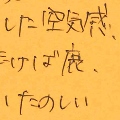 した空気感、
まけば鹿、
いたのしい